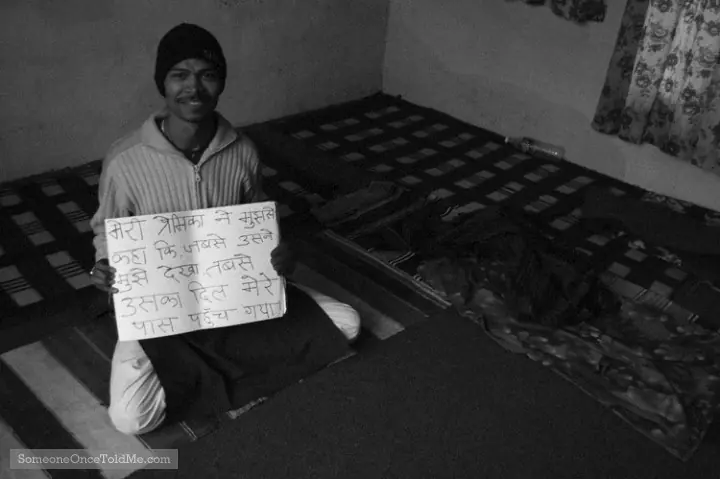 मेरी प्रेमिका ने मुझसे
कहा कि, जबसे उसने
मुझे देखा तबसे
उसका दिल मेरे
पास पहुँच गया।
SomeoneOnceToldMe.com